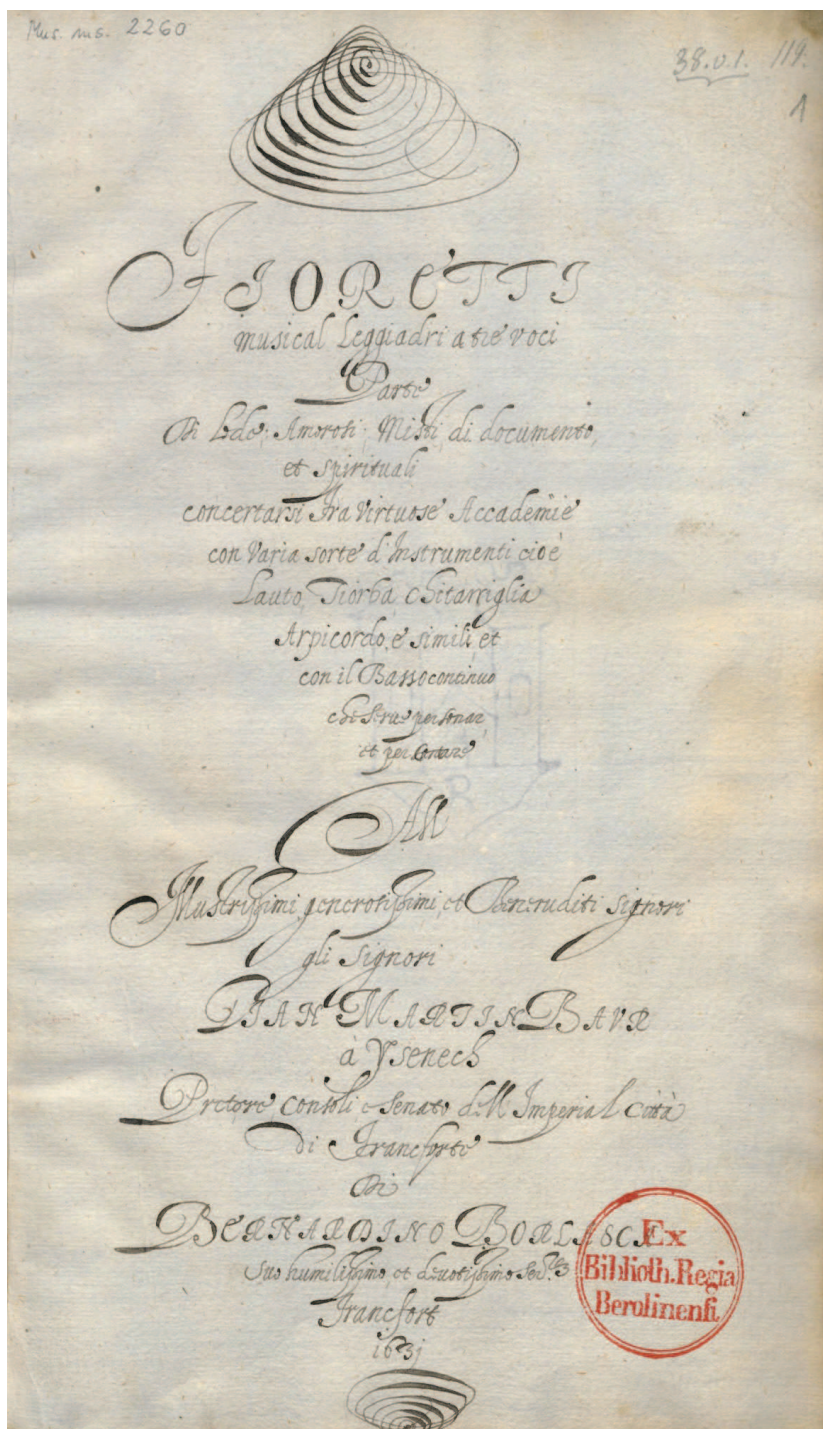 Mus. ms. 2260
38.v.1. 119.
1
FIORETTI
musical Leggiadri a tre voci
Parte
Di Lode, Amorosi, Misti, di documento,
et spirituali
concertarsi fra virtuose Accademie
con Varia sorte d'Instrumenti cioè
Lauto, Tiorba, Chitarriglia
Arpicordo, e simili, et
con il Basso continuo
che serve per sonar,
et per cantare
All
Illustrissimi, generosissimi, et Beneruditi signori
gli signori
GIAN MARTIN BAVR
à Ysenech
Pretore Consoli e Senato dell Imperial Città
di Francforte
Di
BERNARDINO BORLASCA
Suo humilissimo, et devotissimo
Francfort
1631
Ex
Biblioth. Regia
Berolinensi.